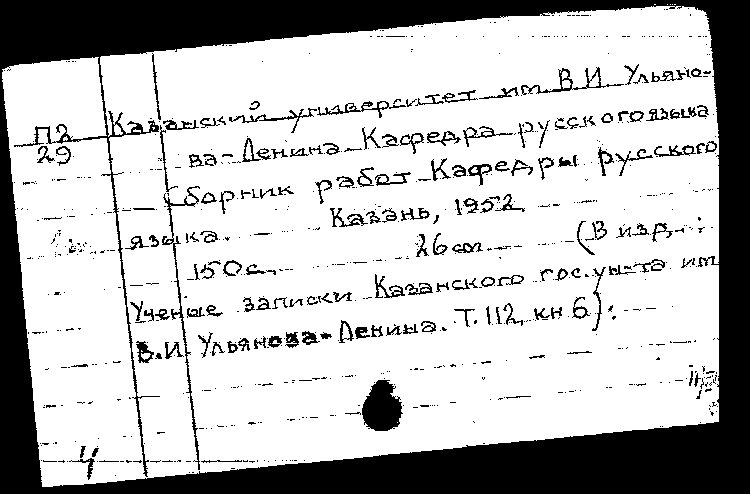 П2
29
Казанский университет им. В.И Ульяно-
ва-Ленина. Кафедра русского языка
Сборник работ Кафедры русского
языка. Казань, 1952.
150с. 26см (В изд.:
Ученые записки Казанского гос.ун-та им
В.И. Ульянова-Ленина. Т. 112, кн 6).
4